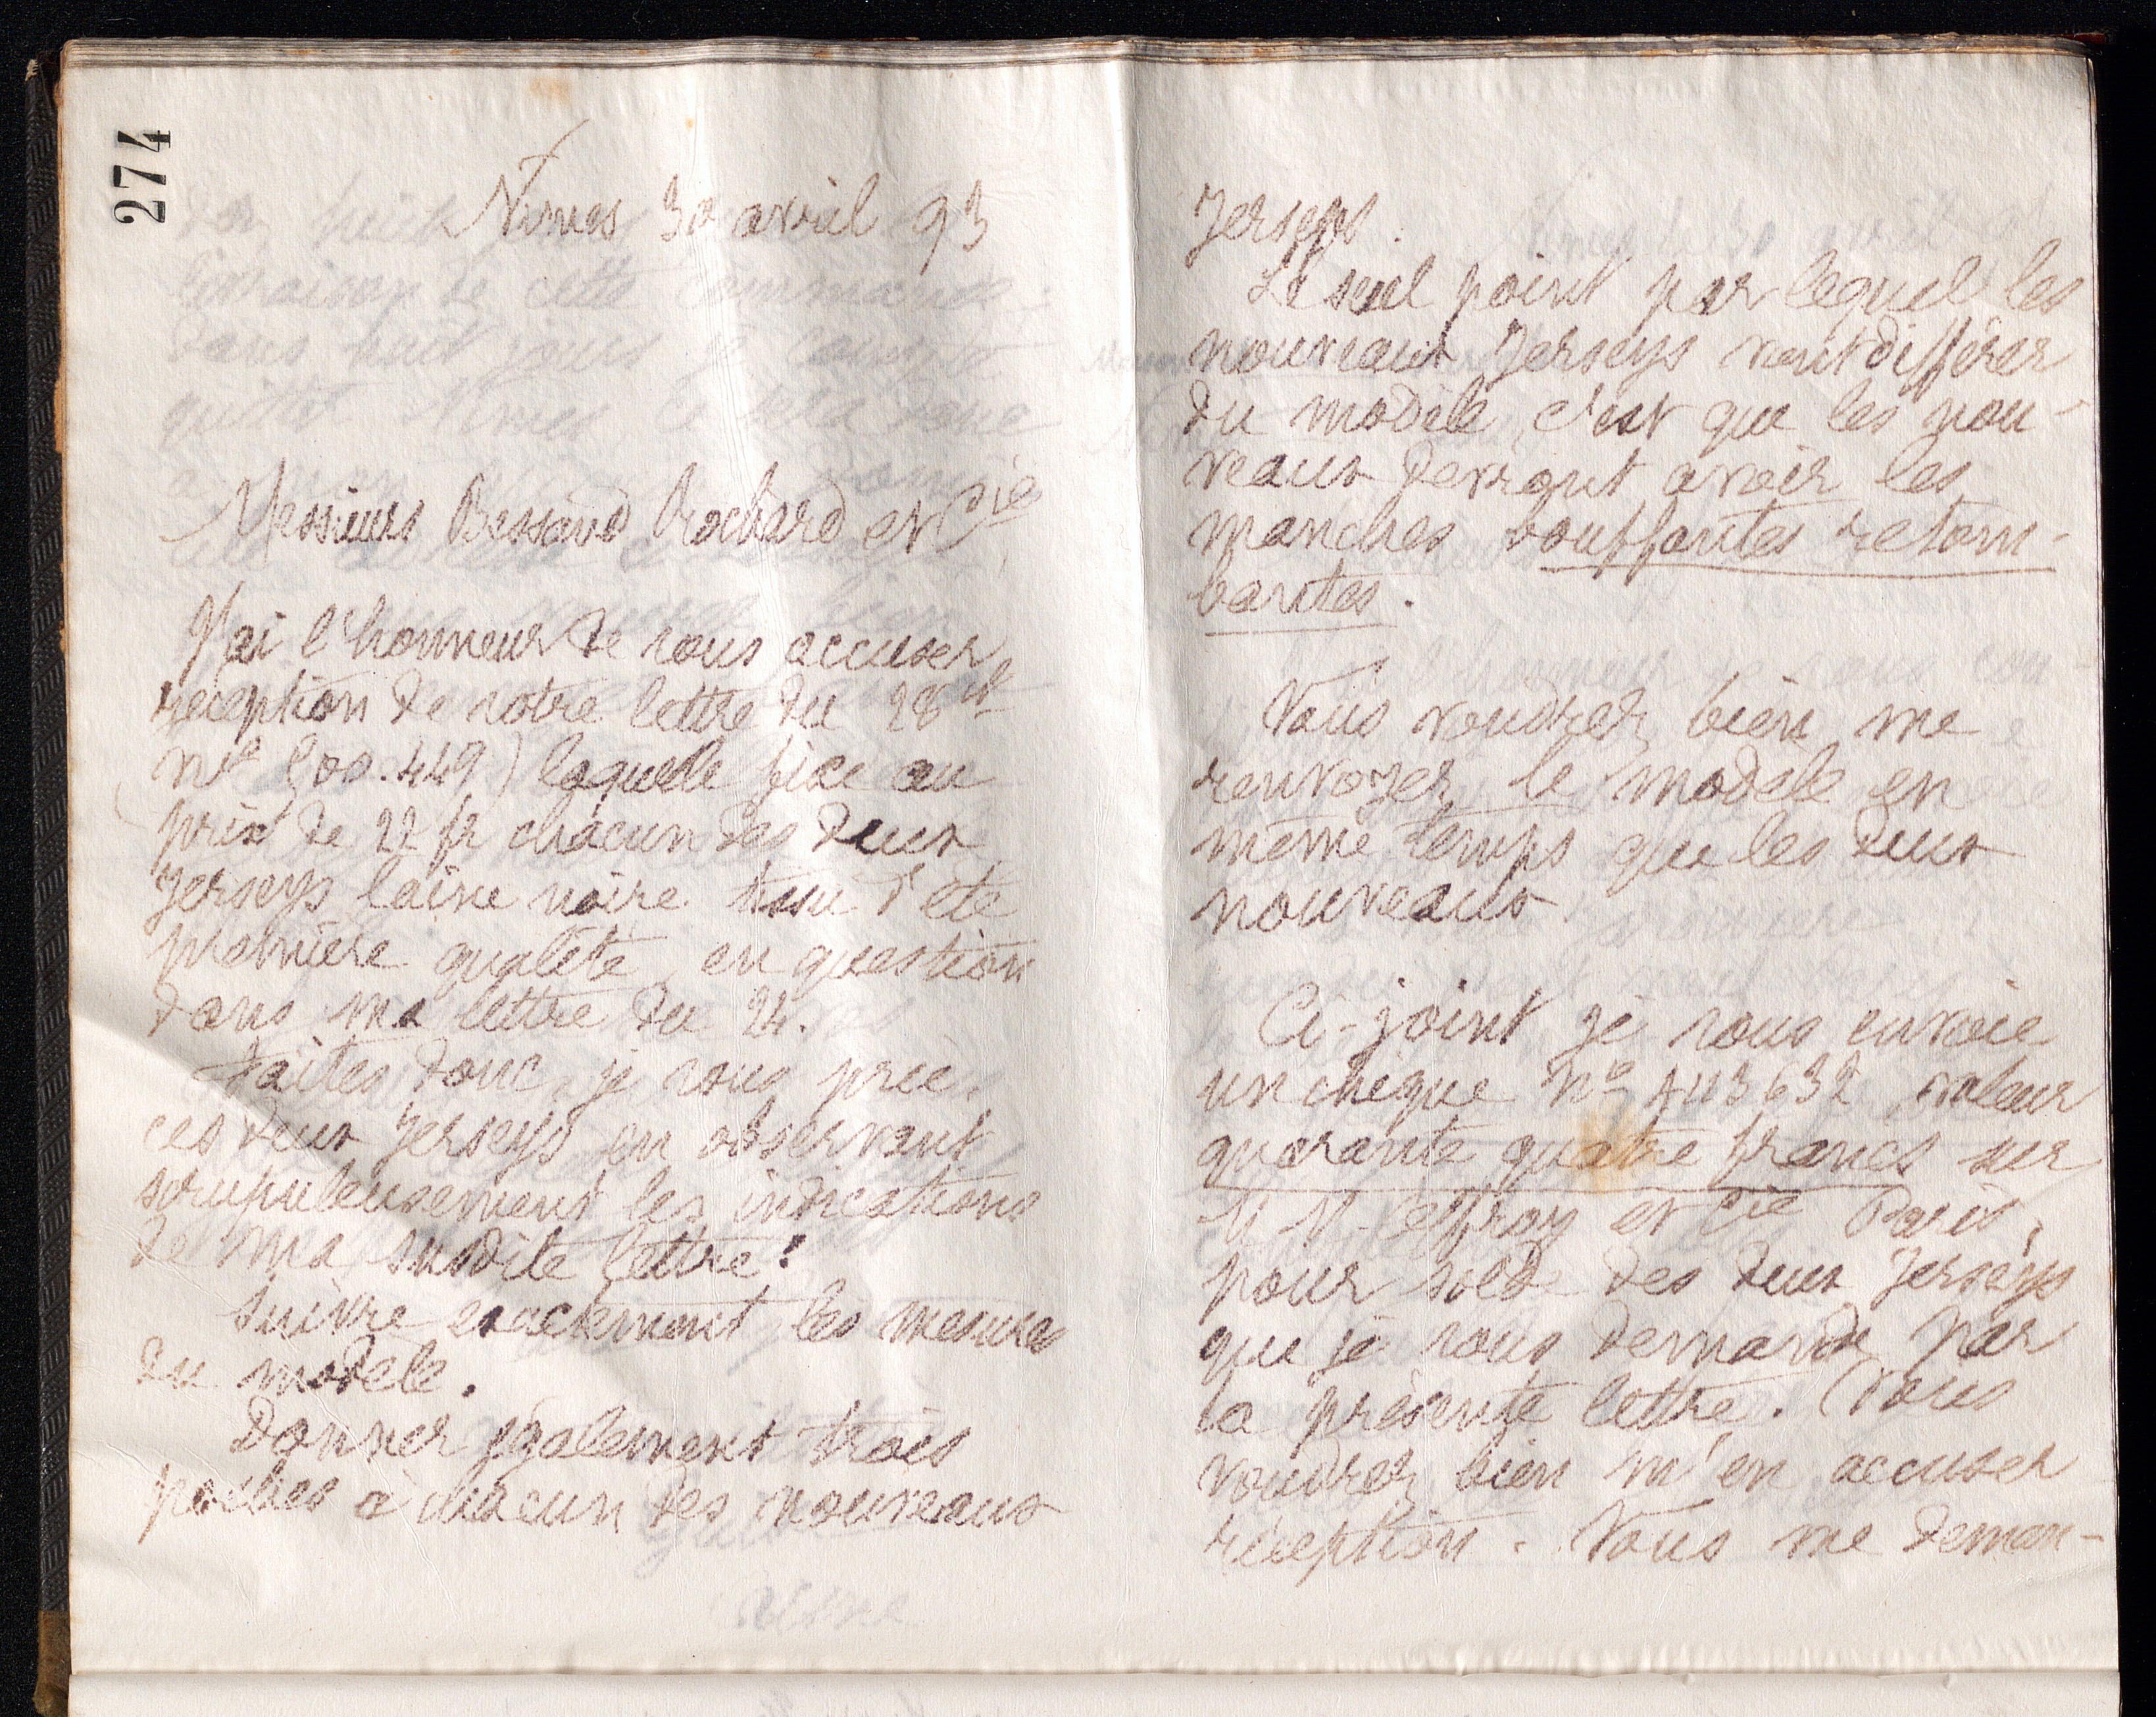 274
Nîmes 30 avril 93
Messieurs Bessand Rochard et Cie
J'ai l'honneur de vous accuser
réception de votre lettre du 28 ct
(n° 500.449) laquelle fixe au
prix de 22 fr chacun des deux
Jerseys laine noire tissu d'été
première qualité, en question
dans ma lettre du 24.
Faites donc, je vous prie,
ces deux Jerseys en observant
scrupuleusement les indications
de ma susdite lettre:
Suivre exactement les mesures
du modèle.
Donner également trois
poches à chacun des nouveaux
Jerseys.
Le seul point par lequel les
nouveaux Jerseys vont différer
du modèle, c'est que les nou-
veaux devront avoir les
manches bouffantes retom-
bantes.
Vous voudrez bien me
renvoyer le modèle en
même temps que les deux
nouveaux.
Ci-joint je vous envoie
un chèque N° 443632 valeur
quarante quatre francs sur
Offroy et Cie Paris,
pour solde des deux Jerseys
que je vous demande par
la présente lettre. Vous
voudrez bien m'en accuser
réception. Vous me deman-